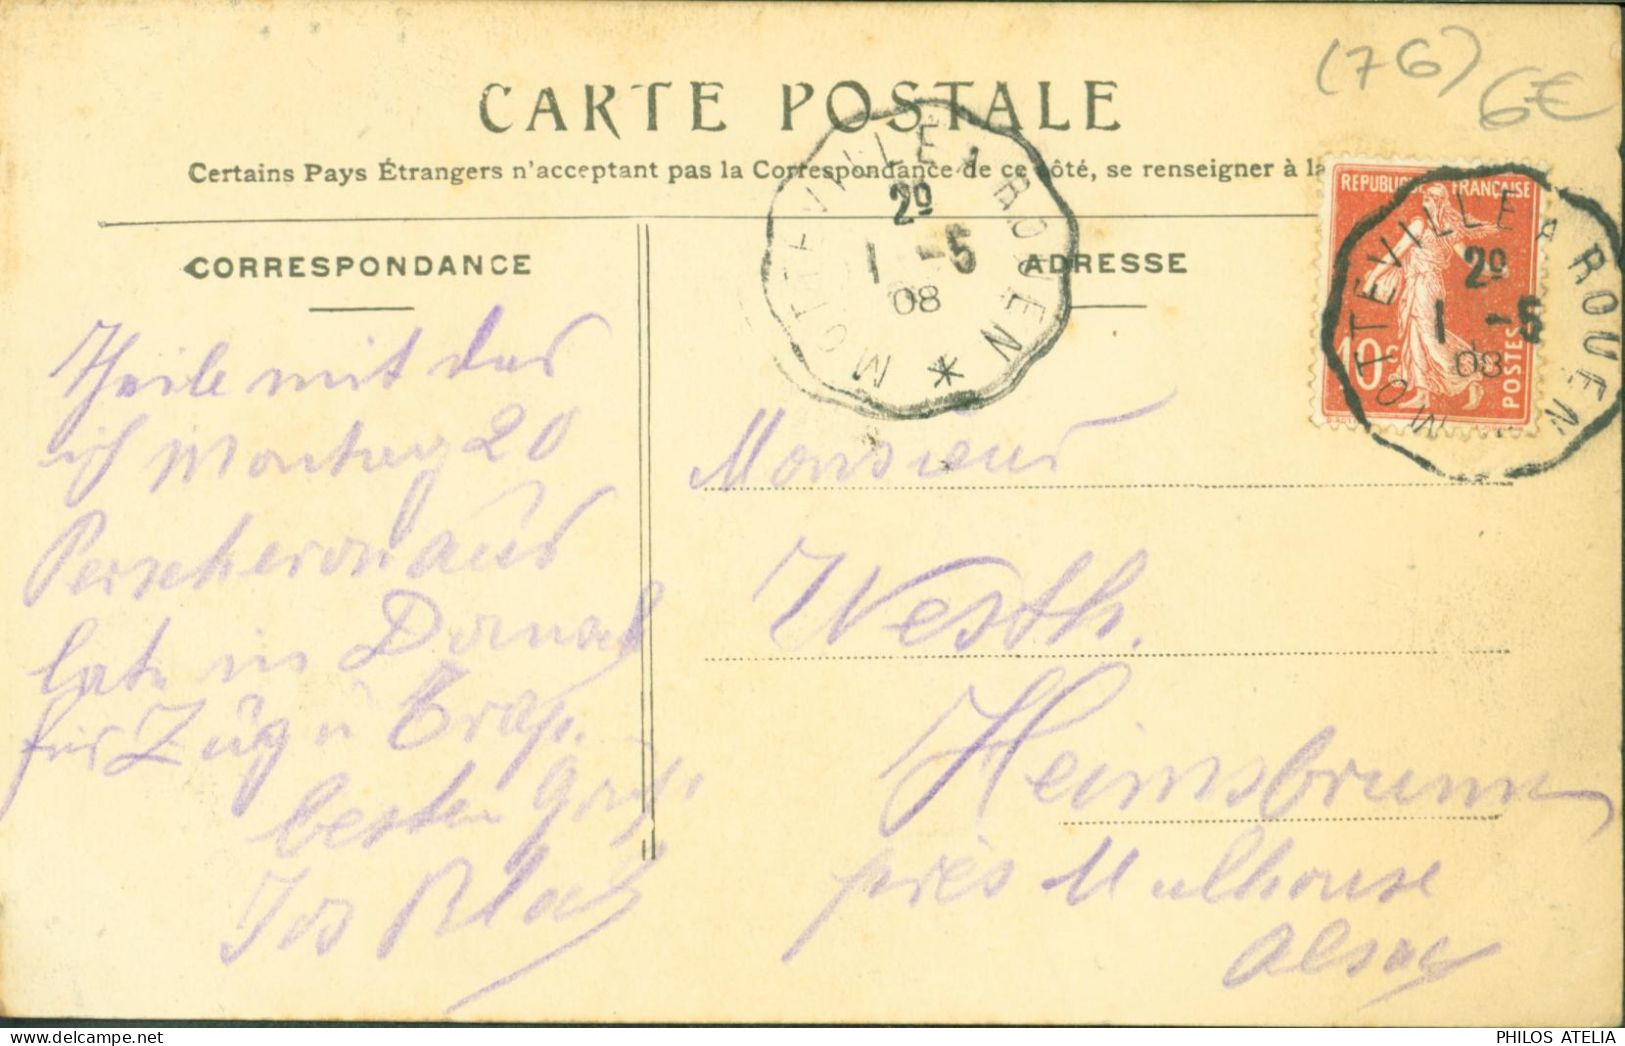 (76) 6€
CARTE POSTALE
Certains Pays Étrangers n'acceptant pas la Correspondance de ce côté, se renseigner à la
MOTTEVILLE A ROUEN *
2º
1 -5
08
REPUBLIQUE FRANÇAISE
10c
POSTES
MOTTEVILLE A ROUEN
2º
1 -5
08
CORRESPONDANCE
ADRESSE
Theile mit das
ich Montag 20
Perscheron aus
in Dornach
für Zug u Trap.
besten Gruß
Jos
Monsieur
Westh.
Heimsbrunn
près Mulhouse
Alsac
PHILOS ATELIA